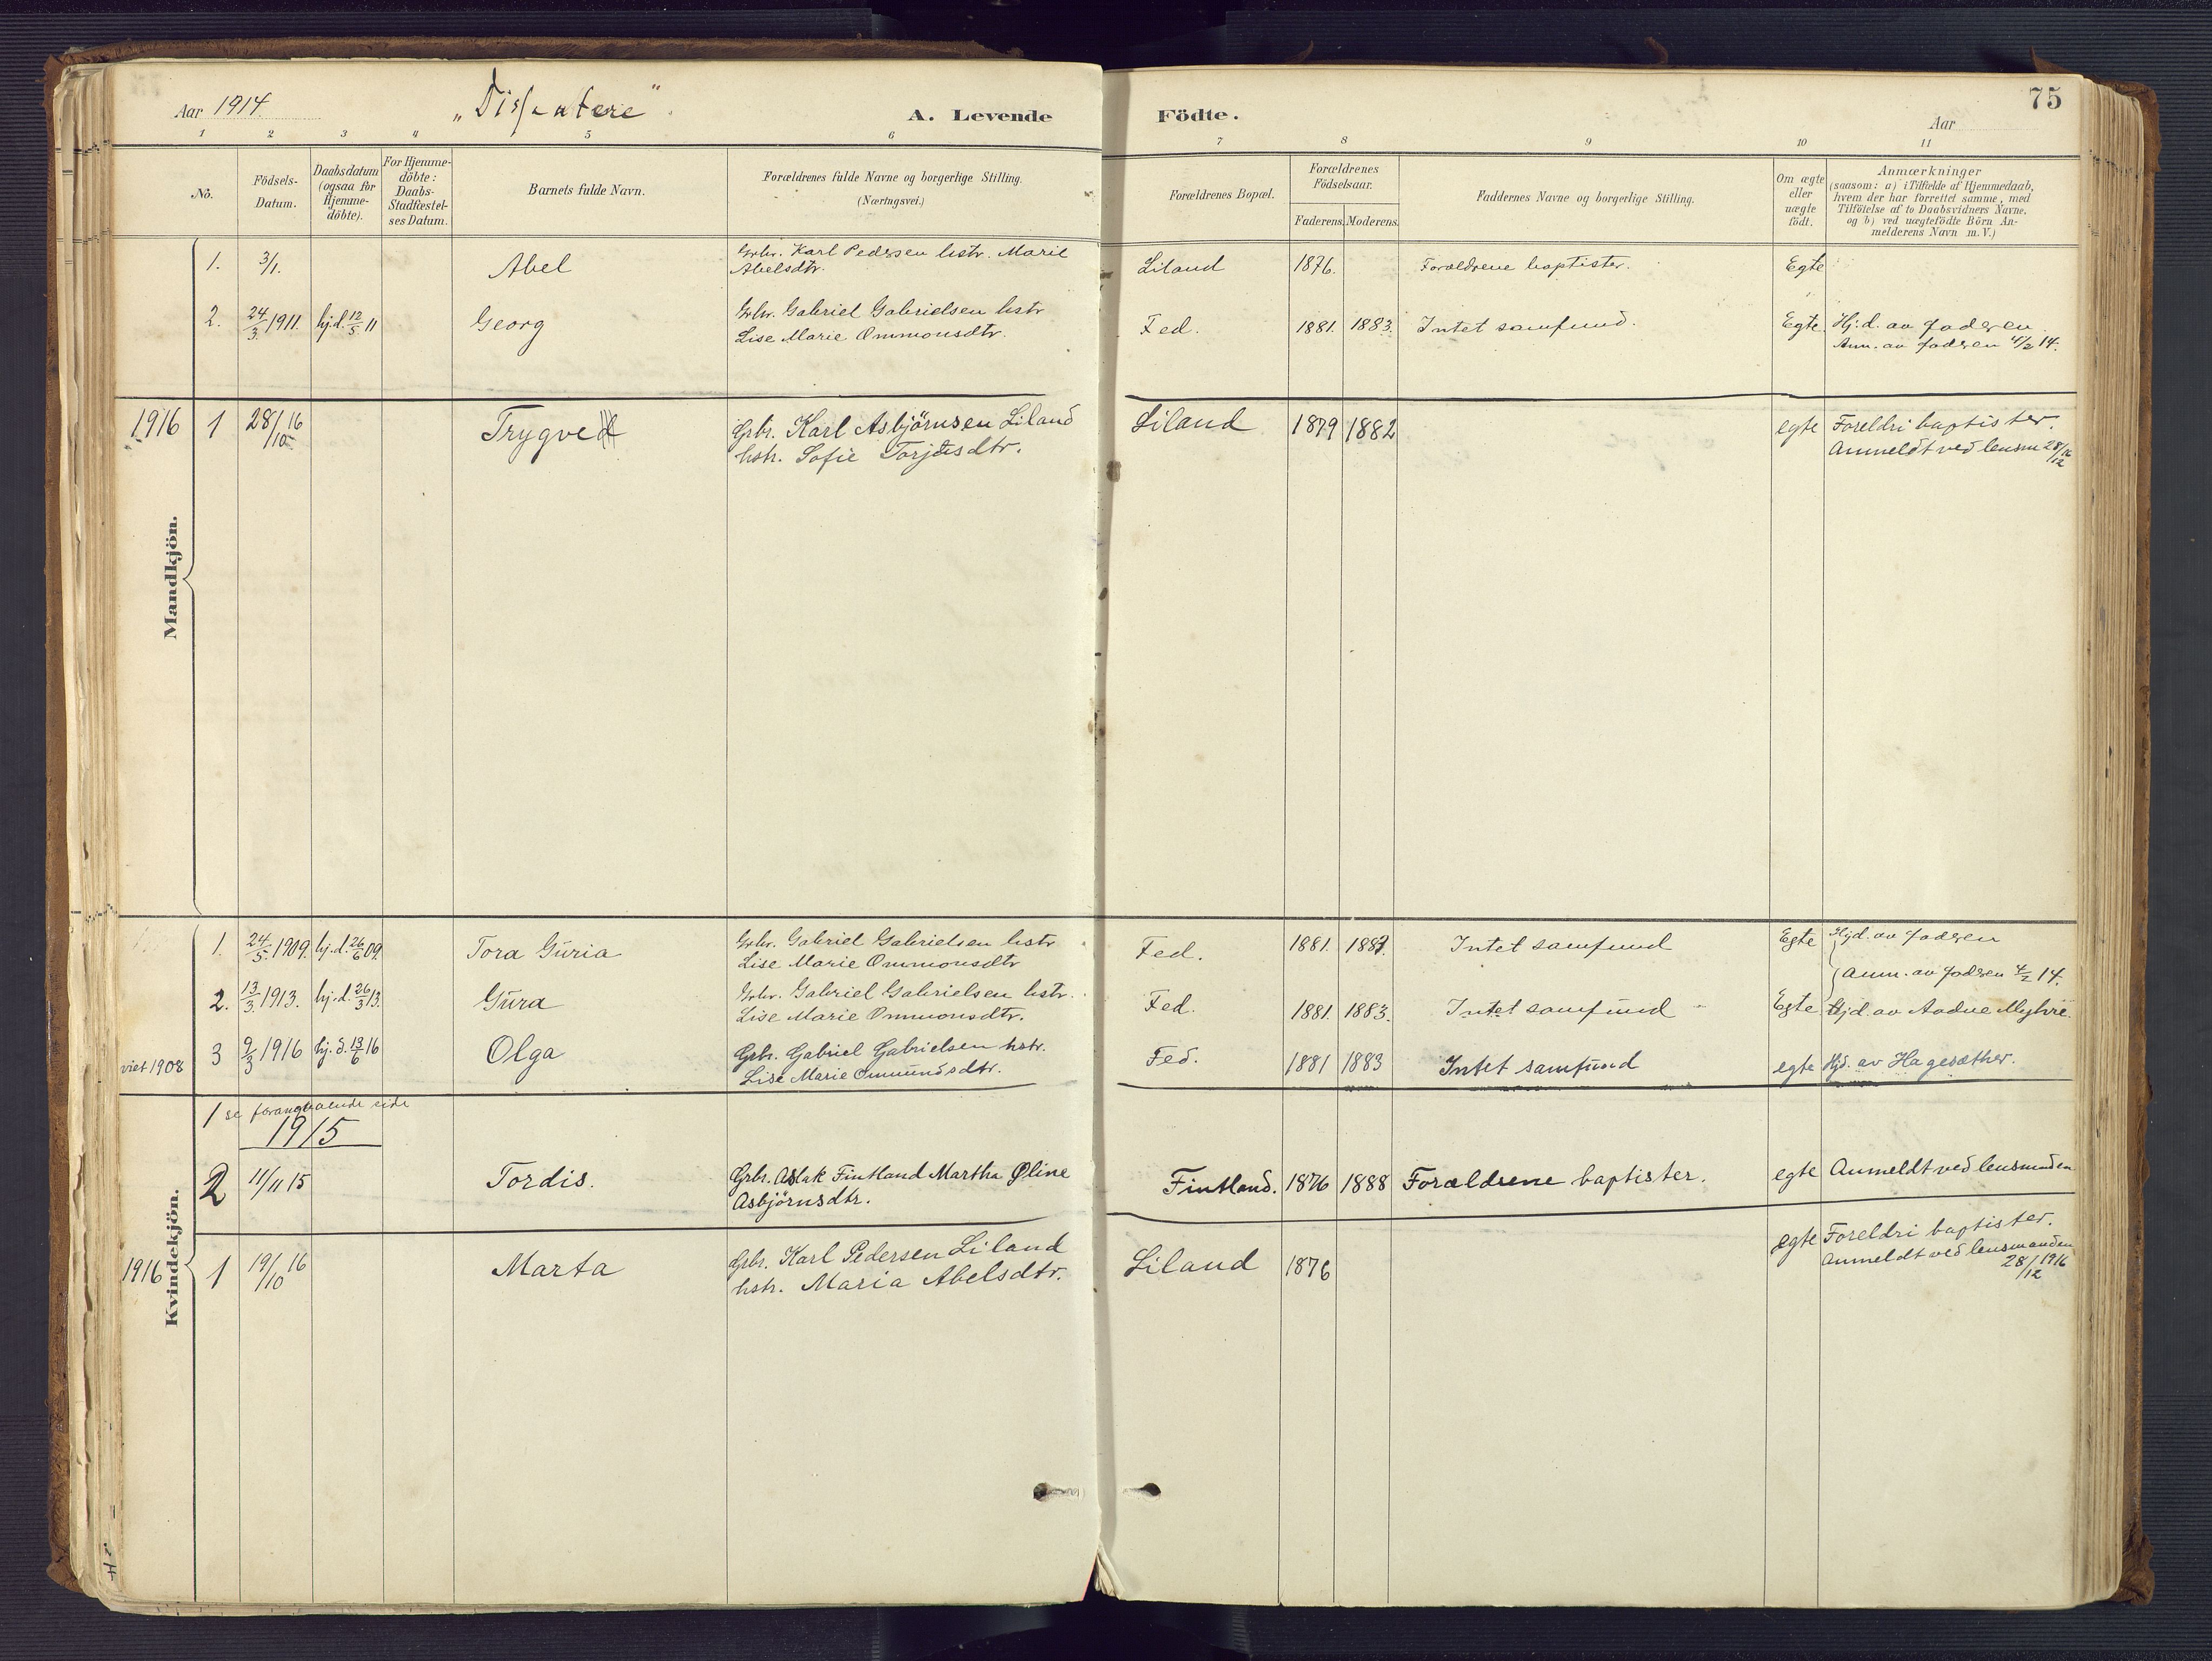 Aar 1914. „Dissentere" A. Levende Födte. Aar 75
1 2 3 4 5 6 7 8 9 10 11
No. Födsels-Datum. Daabsdatum (ogsaa for Hjemme-döbte). For Hjemme-döbte: Daabs-Stadfæstel-ses Datum. Barnets fulde Navn. Forældrenes fulde Navne og borgerlige Stilling. (Næringsvei.) Forældrenes Bopæl. Forældrenes Födselsaar. Faderens. Moderens. Faddernes Navne og borgerlige Stilling. Om ægte eller uægte födt. Anmærkninger (saasom: a) i Tilfælde af Hjemmedaab, hvem der har forrettet samme, med Tilföielse af to Daabsvidners Navne, og b) ved uægtefödte Börn An-melderens Navn m. V.)
Mandkjön.
1. 3/1. Abel Grbr. Karl Pedersen hstr. Marie
Abelsdtr. Liland 1876. Forældrene baptister. Egte
2. 24/3 1911. hj.d. 12/5 11 Georg Grbr. Gabriel Gabrielsen hstr
Lise Marie Ommonsdtr. Fed. 1881. 1883. Intet samfund. Egte. Hj.d. av faderen
Anm. av faderen 4/2 14.
1916 1 28/10 16 Trygve Grbr. Karl Asbjörnsen Liland
hstr. Sofie Torjesdtr. Liland 1879 1882 egte Foreldri baptister.
Anmeldt ved lensm 28/12 16
Kvindekjön.
1. 24/5 1909. hj.d. 26/6 09. Tora Gŭria Grbr. Gabriel Gabrielsen hstr
Lise Marie Ommonsdtr Fed. 1881. 1883. Intet samfund Egte Hjd. av faderen
Anm. av faderen 4/2 14.
2. 13/3 1913. hj.d. 26/3 13. Gŭra Grbr. Gabriel Gabrielsen hstr.
Lise Marie Ommonsdtr. Fed. 1881. 1883. Intet samfund Egte Hjd. av Aadne Myhre.
viet 1908 3 9/3 1916 hj.d. 13/6 16 Olga Grbr. Gabriel Gabrielsen hstr.
Lise Marie Ommundsdtr. Fed. 1881 1883 Intet samfund egte Hjd. av Hagesæther.
1 se foranstaaende side
1915
2 11/11 15 Tordis. Grbr. Aslak Fintland Martha Oline
Asbjörnsdtr. Fintland. 1876 1888 Forældrene baptister. egte Anmeldt ved lensmaden
1916 1 19/10 16 Marta Grbr. Karl Pedersen Liland
hstr. Maria Abelsdtr. Liland 1876 egte Foreldri baptister.
Anmeldt ved lensmanden
28/12 1916